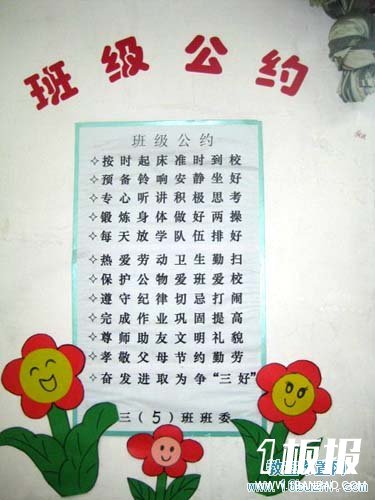 班级公约
班级公约
✧按时起床准时到校
✧预备铃响安静坐好
✧专心听讲积极思考
✧锻炼身体做好两操
✧每天放学队伍排好
✧热爱劳动卫生勤扫
✧保护公物爱班爱校
✧遵守纪律切忌打闹
✧完成作业巩固提高
✧尊师助友文明礼貌
✧孝敬父母节约勤劳
✧奋发进取为争“三好”
三（5）班班委
1板报